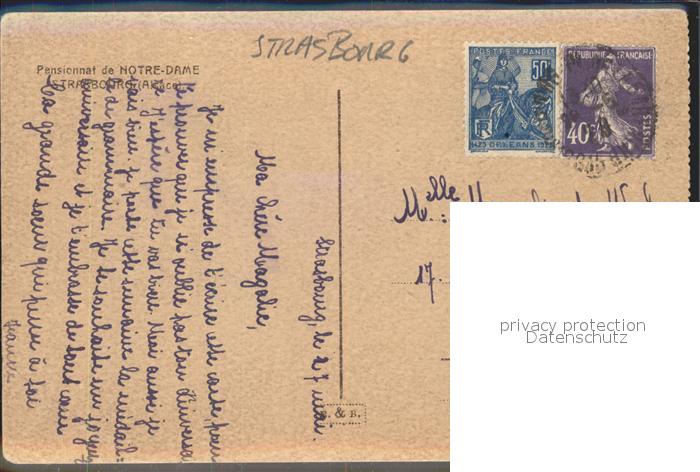 STRASBOURG
Pensionnat de NOTRE-DAME
STRASBOURG (Alsace)
POSTES-FRANCE
50c
RF
1429 ORLEANS 1929
REPUBLIQUE FRANÇAISE
40c
POSTES
Strasbourg, le 27 mai.
Ma chère Magalie,
Je m'empresse de t'écrire cette carte pour
te prouver que je n'oublie pas ton anniversa
J'espère que tu vas bien. Moi aussi je
vais bien. Je porte cette semaine la médail-
le de grammaire. Je te souhaite un joyeux
anniversaire et je t'embrasse de tout cœur
Ta grande sœur qui pense à toi
Jeanne
Mlle
17.
& E.
privacy protection
Datenschutz